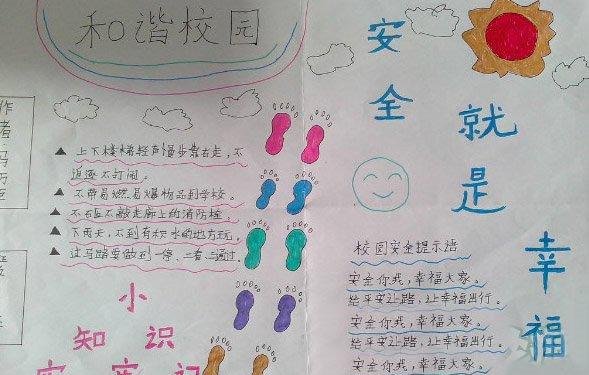 和谐校园
作
者
冯
万
▲ 上下楼梯轻声慢步靠右走,不
追逐不打闹。
▲ 不带易燃易爆物品到学校。
▲ 不石匝不敲走廊上的消防栓。
▲ 下雨天,不到有积水的地方玩。
▲ 过马路要做到一停、二看、三通过.
小
知识
安全
就是
幸福
校园安全提示语
安全你我,幸福大家。
给平安让路,让幸福出行。
安全你我,幸福大家。
给平安让路,让幸福出行。
安全你我,幸福大家。